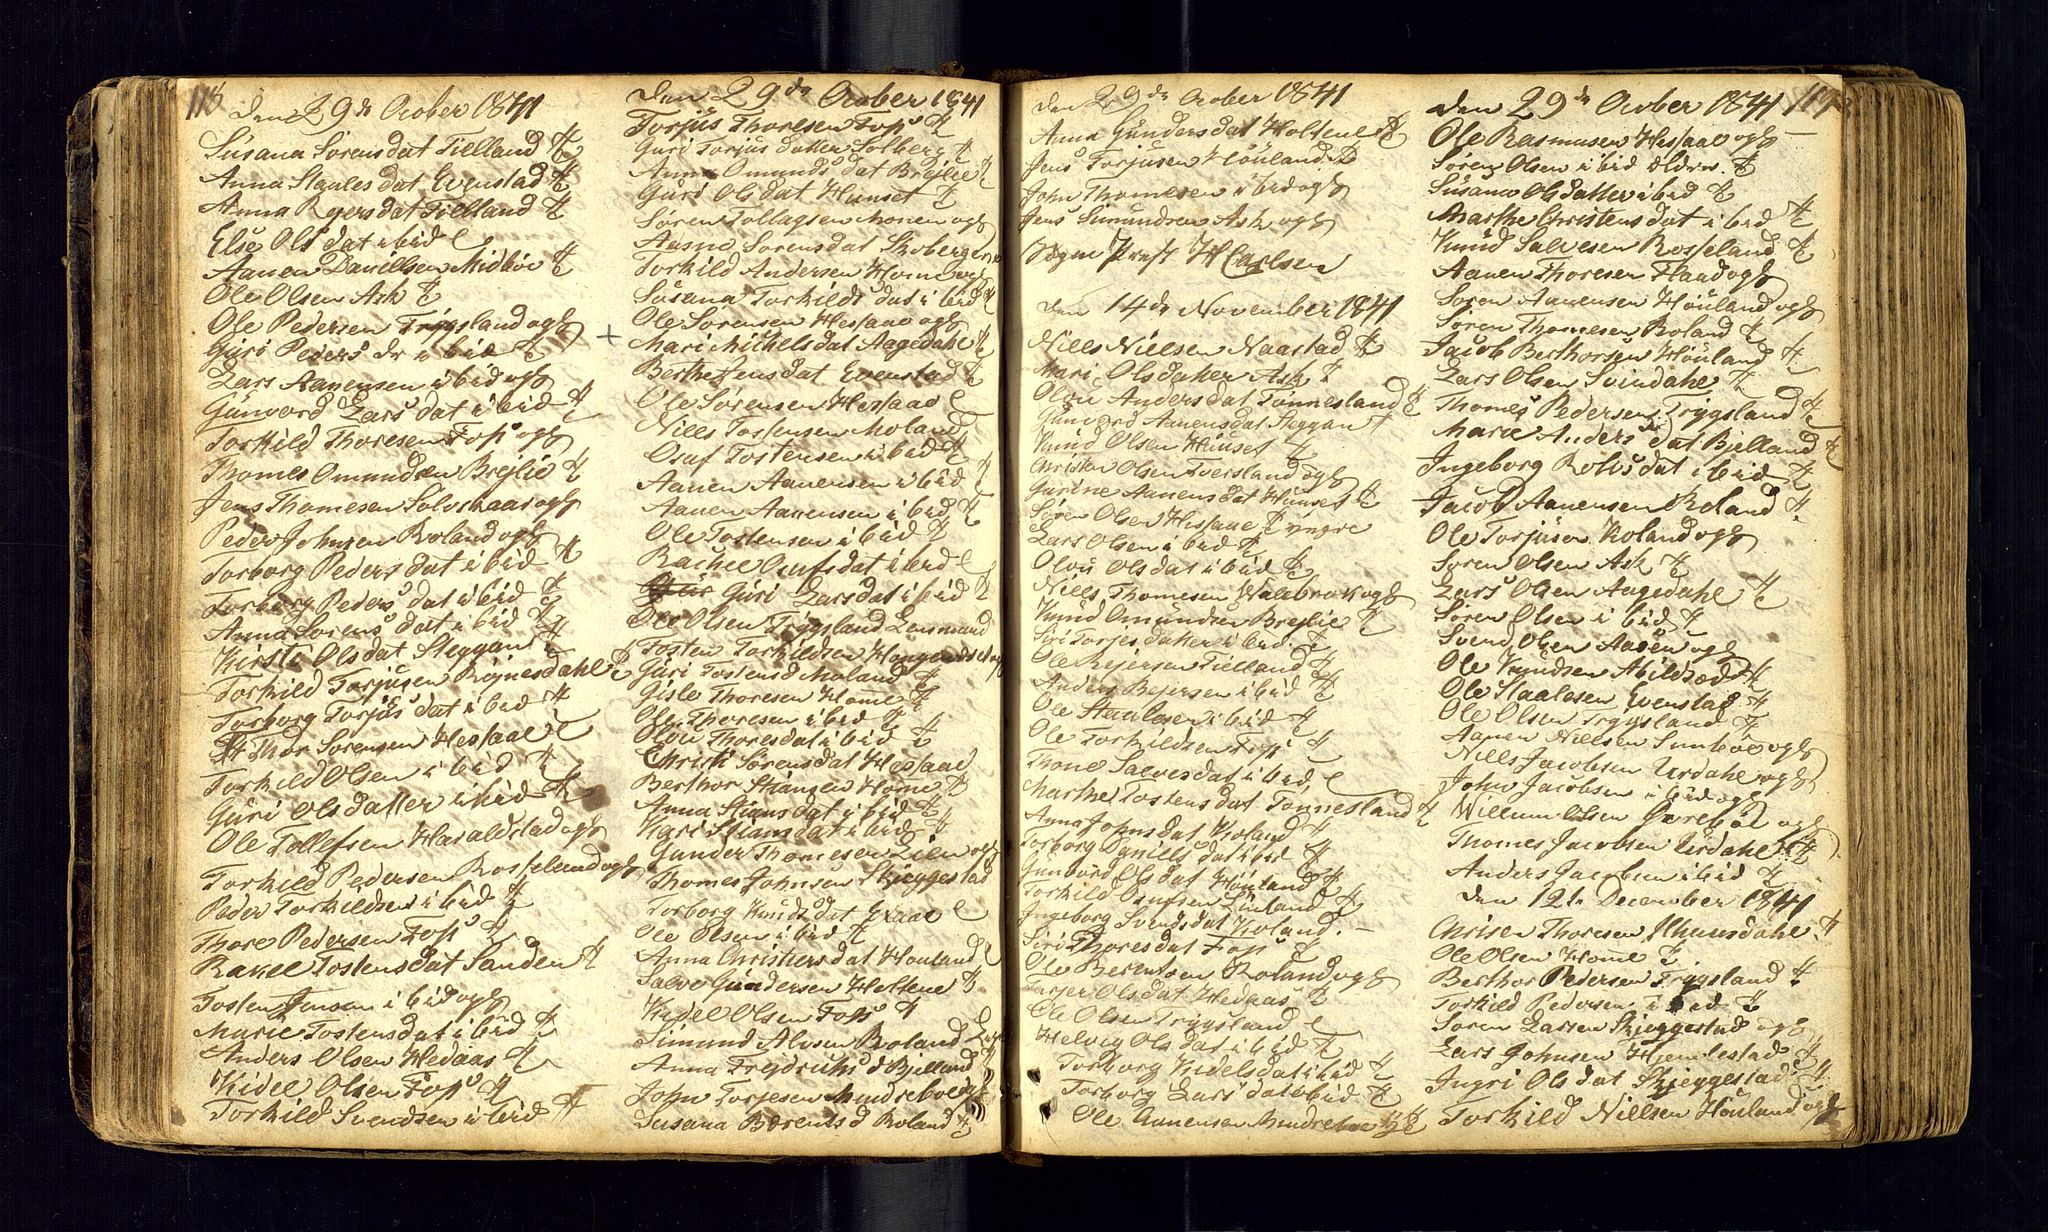 118
den 29de October 1841
Susana Sørensdat Fielland
Anna Staalesdat Evenstad
Anna Reiersdat Fielland
Else Olsdat ibid
Aanen Danillsen Midbøe
Ole Olsen Ask
Ole Pedersen Trÿgsland og
Guri Peders dr ibid
Lars Aanensen ibid og
Gunvord Larsdat ibid
Torkild Thoresen Fos og
Thomes Omundsen Brejlie
Jens Thomesen
Peder Johnsen Roland og
Torborg Pedersdat ibid
Torborg Pedersdat ibid
Anna Sørensdat ibid
Kirsti Olsdat Steggan
Torkild Torjusen Røjnesdahl
Torborg Torjusdat ibid
Thor Sørensen Hessaae
Torkild Olsen ibid
Guri Olsdatter ibid
Ole Tollefsen Haraldstad og
Torkild Pedersen Rosseland og
Peder Torkildsen ibid
Thore Pedersen Fos
Rakel Tostensdat Sanden
Tosten Jensen ibid og
Marie Tostensdat ibid
Anders Olsen Hedaas
Kidel Olsen Fos
Torkild Svendsen ibid
den 29de October 1841
Torjus Thoresen Fos
Guri Torjusdatter Solberg
Anna Omundsdat Brejlie
Guri Olsdat Hunset
Søren Tollagsen Monen og
Aasno Sørensdat
Torkild Andersen Home og
Susana Torkildsdat ibid
Ole Sørensen Hessaae og
+ Mari Michelsdat Aagedahl
Berthe Jensdat Evenstad
Ole Sørensen Hessaae
Nills Tostensen Moland
Osuf Tostensen ibid
Aanen Aanensen ibid
Aanen Aanensen ibid
Ole Tostensen ibid
Rachel Osufsdat ibid
Guri Larsdat ibid
Ole Olsen Trÿgsland Lensmand
Tosten Torkildsen
Guri Tostensd Moland
Gisle Thoresen Home
Ole Thoresen ibid
Olou Thoresdat ibid
Christi Sørensdat Hessaae
Berthor Stiansen Home
Anna Stiansdat ibid
Kari Stiansdat ibid
Gunder Thomesen Lien og
Thomes Johnsen Skjeggestad
Torborg Knudsdat
Ole Olsen ibid
Anna Christensdat Houland
Salve Gundersen Holtene
Kidel Olsen Fos
Simund Alvsen Roland
Anna Frejdrichsd Bjelland
John Torjesen Mindreboe og
Susana Berentsd Roland
den 29de October 1841
Anna Gundersdat Holtene
Jens Torjusen Høuland
John Thomesen ibid og
Jens Simundsen Ask og
Sogne Præst H Carlsen
den 14de November 1841
Nills Nielsen Naastad
Mari Olsdatter Ask
Olou Andersdat Tønnesland
Gunvord Aanensdat Steggan
Knud Olsen Hunset
Christen Olsen Tversland og
Gurine Aanensdat Hunset
Søren Olsen Hessaae yngre
Lars Olsen ibid
Olou Olsdat ibid
Nills Thomesen Wallebrok og
Knud Omundsen Brejlie
Siri Torjesdatter ibid
Ole Rejersen Fielland
Anders Rejersen ibid
Ole Staalesen ibid
Ole Torkildsen Fos
Thone Salvesdat ibid
Marthe Tostensdat Tønnesland
Anna Johnsdat Roland
Torborg Danillsdat ibid
Gunvord Olsdat Høuland
Torkild Osufsen Linland
Ingeborg Svendsdat Roland
Siri Thoresdat Fos
Ole Berentsen Roland og
Torjer Olsdat Hedaas
Ole Olsen Trÿgsland
Helvig Olsdat ibid
Torborg Kidelsdat ibid
Torborg Larsdat ibid
Ole Aanensen Mindreboe
den 29de October 1841 119
Ole Rasmusen Hessaae og
Søren Olsen ibid eldre
Susana Olsdatter ibid
Marthe Christensdat ibid
Knud Salvesen Rosseland
Aanen Thoresen Flaad og
Søren Aanensen Høuland og
Søren Thomesen Roland
Jacob Berthorsen Høuland
Lars Olsen Svindahl
Thomes Pedersen Trÿgsland
Marie Andersdat Bjelland
Ingeborg Rolvsdat ibid
Jacob Aanensen Roland
Ole Torjusen Roland og
Søren Olsen Ask
Lars Olsen Aagedahl
Søren Olsen ibid
Svend Olsen Aasen og
Ole Knudsen Abildsød
Ole Staalesen Evenstad
Ole Olsen Trygsland
Aanen Nillsen Sumboe og
Nills Jacobsen Urdahl og
John Jacobsen ibid og
Willum Olsen Øvrebøe og
Thomes Jacobsen Urdahl
Anders Jacobsen ibid
den 12te December 1841
Chrisen Thoresen Ilhunsdahl
Ole Olsen Home
Berthor Pedersen Trygsland
Torkild Pedersen ibid
Søren Larsen Skjeggestad og
Lars Johnsen Hjemlestad
Ingri Olsdat Skjeggestad
Torkild Nillsen Høuland og